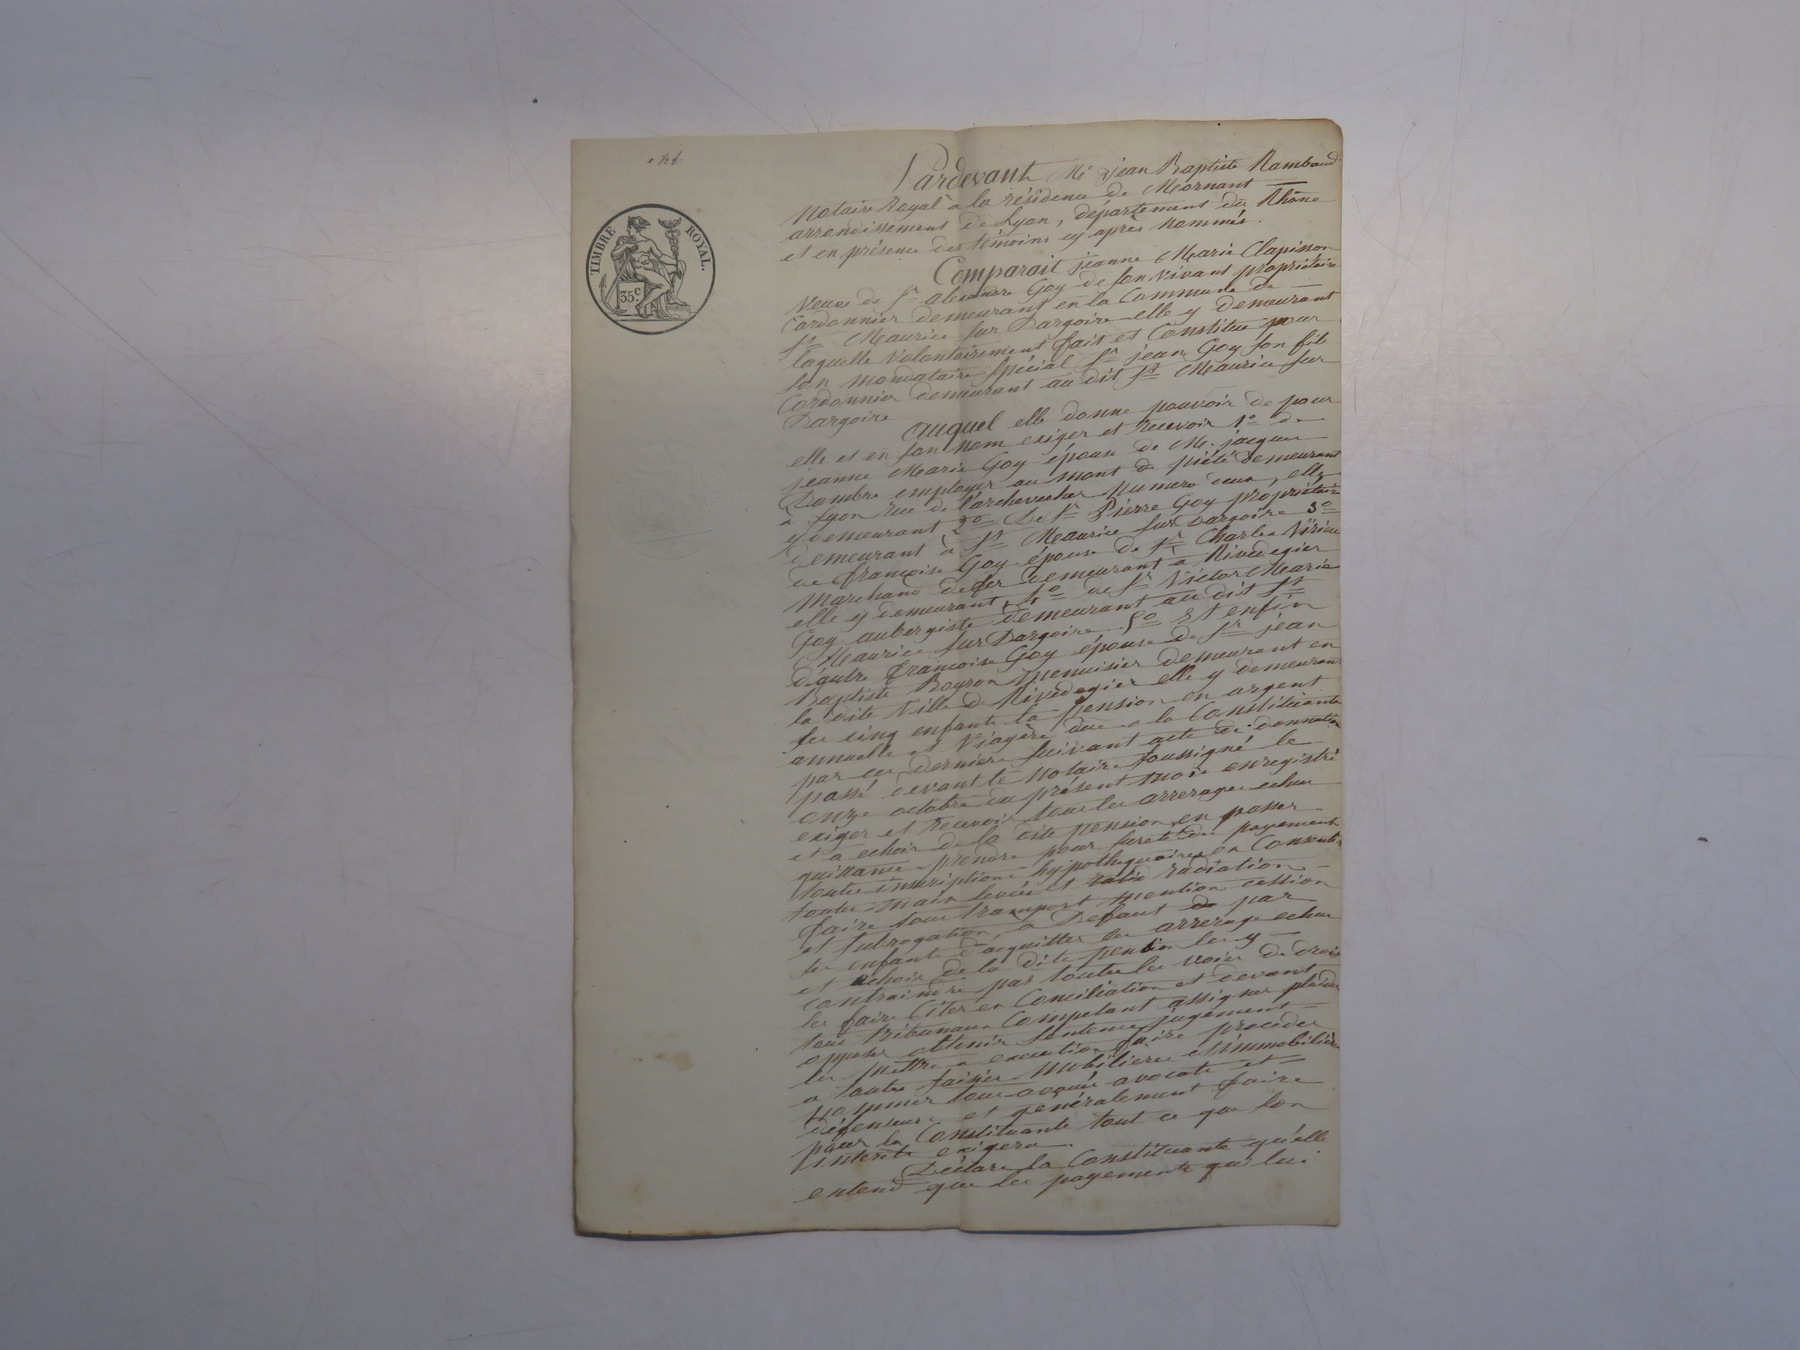 TIMBRE ROYAL.
35c
Pardevant Me jean Baptiste Rambaud
Notaire Royal à la résidence de Mornant
arrondissement de Lyon, département du Rhône
et en présence des témoins cy après nommés.
Comparait jeanne Marie Clapisson
Veuve de Sr alexandre Goy de son vivant propriétaire
Cordonnier demeurant en la Commune de
St Maurice sur Dargoire elle y demeurant
laquelle volontairement fait et Constitue pour
son mandataire spécial Sr jean Goy son fils
Cordonnier demeurant au dit St Maurice sur
Dargoire
auquel elle donne pouvoir de pour
elle et en son nom exiger et recevoir 1o de
jeanne Marie Goy épouse de M. jacques
Dombre employer au mont de piété demeurant
à Lyon rue de l'archevecher Numero deux, elle
y demeurant 2o De Sr Pierre Goy propriétaire
demeurant à St Maurice sur Dargoire 3o
de françoise Goy épouse de Sr Charles Virieu
Marchand de fer demeurant à Rivedegier
elle y demeurant, 4o de Sr Victor Marie
Goy aubergiste demeurant au dit St
Maurice sur Dargoire 5o Et enfin
d'autre françoise Goy épouse de Sr jean
Baptiste Boyron menuisier demeurant en
la dite Ville de Rivedegier elle y demeurant
ses cinq enfants la pension en argent
annuelle et Viagère due a la Constituante
par ces derniers suivant acte de donnation
passé devant le notaire soussigné le
onze octobre du présent mois enregistré
exiger et recevoir tous les arrerages echus
et a echoir de la dite pension, en passer
quittance prendre pour sureté des payements
toutes inscriptions hypothequaires en Consentir
toutes main levées et radiation
faire tous transport mention cession
et subrogation, a Defaut par
ses enfants d'acquitter les arrerages echus
et echoir de la dite pension les y
contraindre par toutes les voies de droit
les faire Citer en Conciliation et devant
tous tribunaux Competant assigner plaider
opposer obtenir sentence jugement
les mettre a execution faire proceder
a toutes saisies Mobilieres et immobilières
Nommer tous avoués avocats et
défenseurs et généralement faire
pour la Constituante tout ce que son
interêt exigera.
Déclare la Constituante qu'elle
entend que les payements qui lui